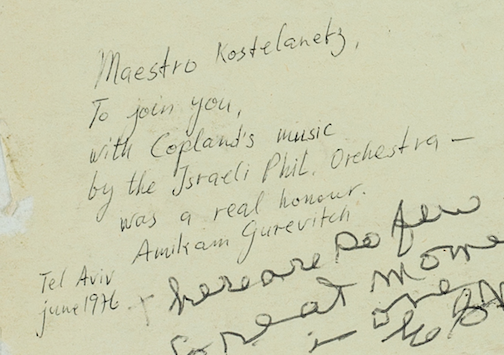 Maestro Kostelanetz,
To join you,
with Copland's music
by the Israeli Phil. Orchestra —
was a real honour.
Amikam Gurevitch
Tel Aviv
june 1976
there are so few
great Mome
in one